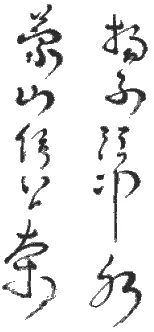 揚子江中水
蒙山頂上茶